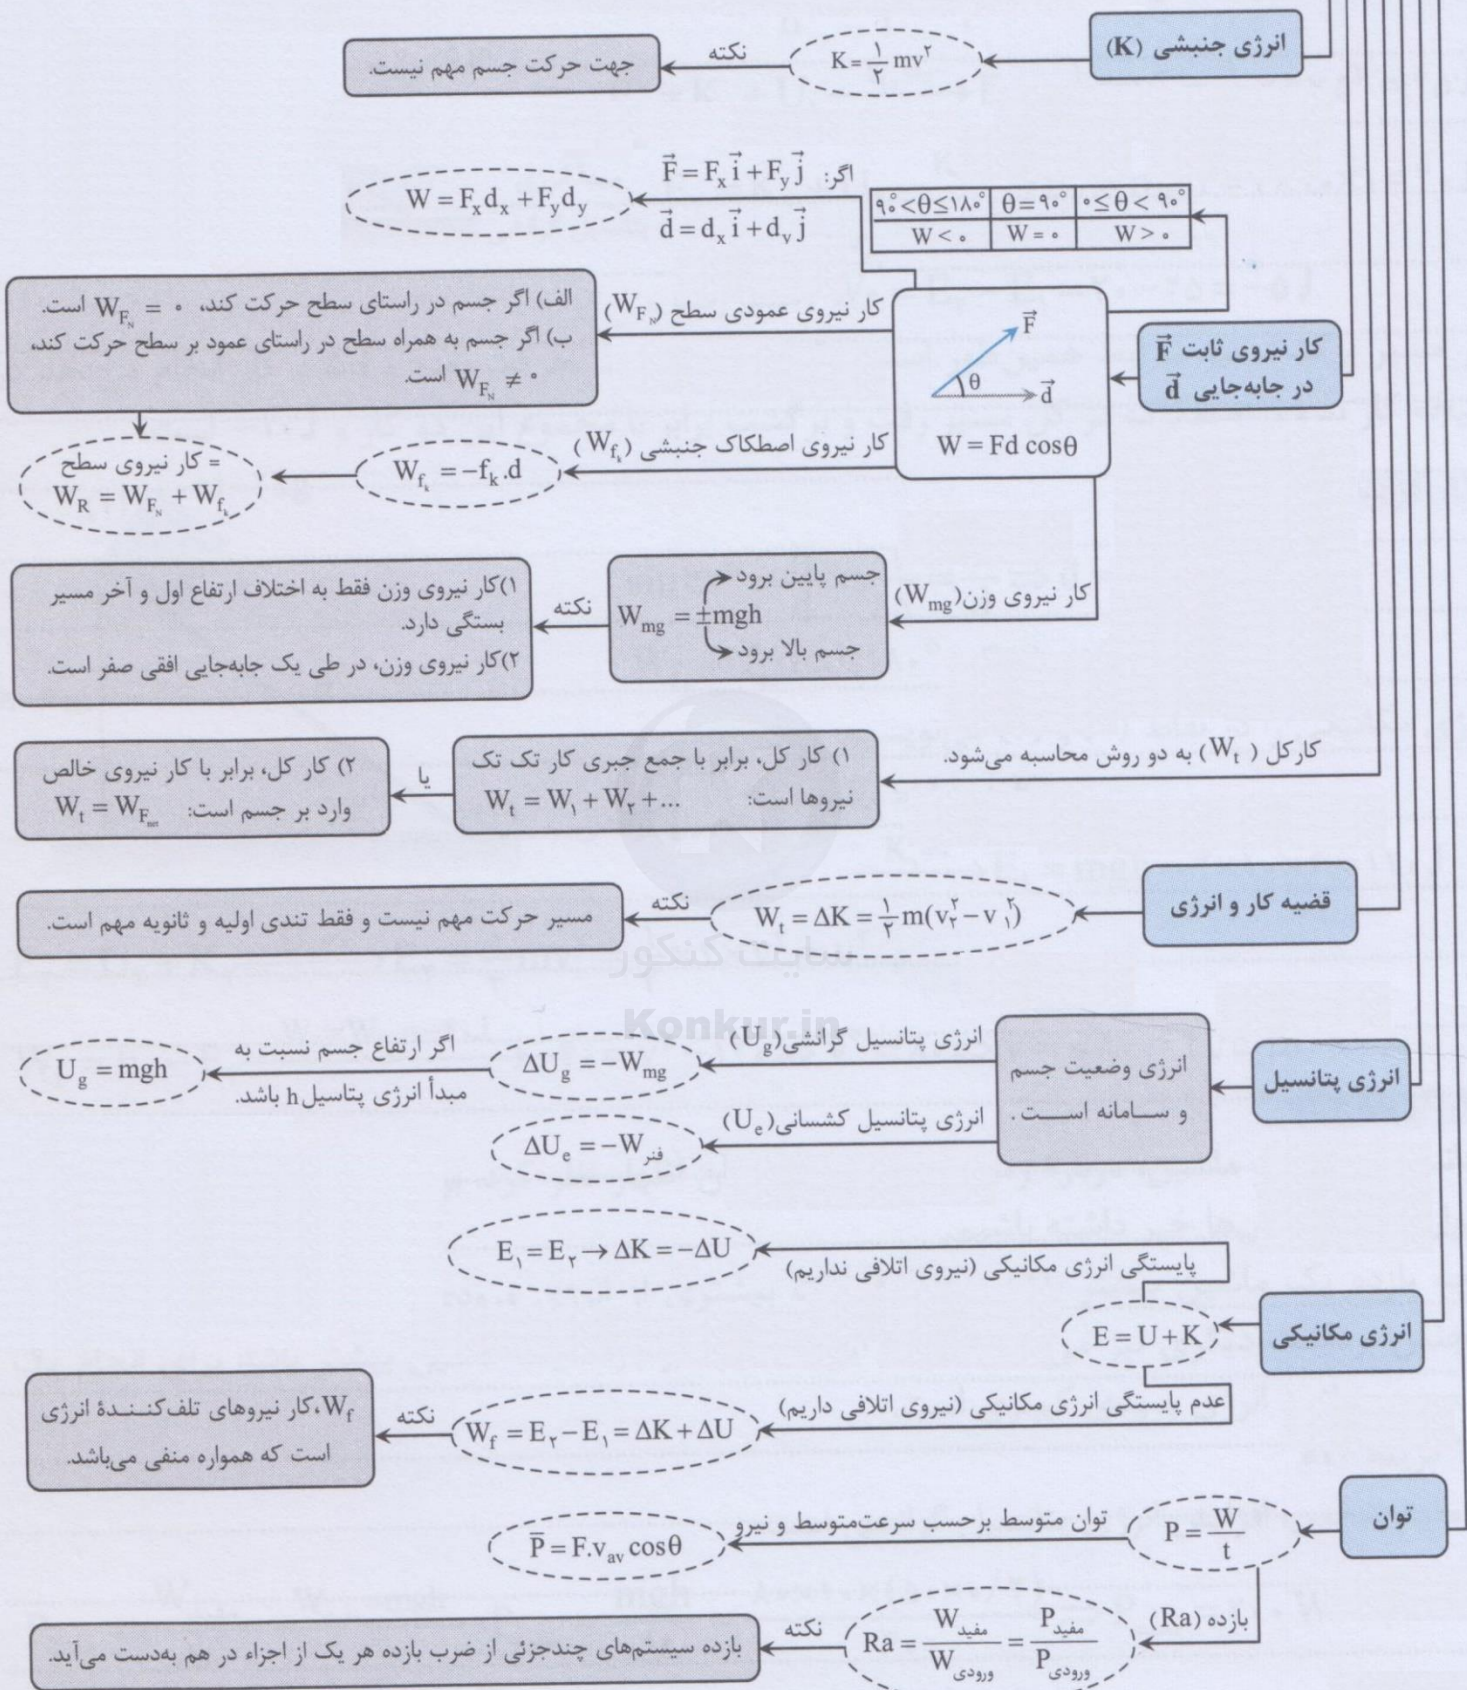 انرژی جنبشی (K)
K = ۱/۲ mv²
نکته
جهت حرکت جسم مهم نیست.
کار نیروی ثابت F⃗
در جابه‌جایی d⃗
F⃗
θ
d⃗
W = Fd cosθ
۰ ≤ θ < ۹۰° | θ = ۹۰° | ۹۰° < θ ≤ ۱۸۰°
W > ۰ | W = ۰ | W < ۰
اگر: F⃗ = Fₓ i⃗ + F_y j⃗
d⃗ = dₓ i⃗ + d_y j⃗
W = Fₓdₓ + F_y d_y
کار نیروی عمودی سطح (W_{F_N})
الف) اگر جسم در راستای سطح حرکت کند، W_{F_N} = ۰ است.
ب) اگر جسم به همراه سطح در راستای عمود بر سطح حرکت کند،
W_{F_N} ≠ ۰ است.
کار نیروی اصطکاک جنبشی (W_{f_k})
W_{f_k} = −f_k.d
= کار نیروی سطح
W_R = W_{F_N} + W_{f_k}
کار نیروی وزن (W_{mg})
جسم پایین برود
W_{mg} = ±mgh
جسم بالا برود
نکته
۱)کار نیروی وزن فقط به اختلاف ارتفاع اول و آخر مسیر
بستگی دارد.
۲)کار نیروی وزن، در طی یک جابه‌جایی افقی صفر است.
کارکل (W_t) به دو روش محاسبه می‌شود.
۱) کار کل، برابر با جمع جبری کار تک تک
نیروها است: W_t = W_۱ + W_۲ + ...
یا
۲) کار کل، برابر با کار نیروی خالص
وارد بر جسم است: W_t = W_{F_{net}}
قضیه کار و انرژی
W_t = ΔK = ۱/۲ m(v_۲² − v_۱²)
نکته
مسیر حرکت مهم نیست و فقط تندی اولیه و ثانویه مهم است.
سایت کنکور
Konkur.in
انرژی پتانسیل
انرژی وضعیت جسم
و سامانه است .
انرژی پتانسیل گرانشی(U_g)
ΔU_g = −W_{mg}
اگر ارتفاع جسم نسبت به
مبدأ انرژی پتاسیل h باشد.
U_g = mgh
انرژی پتانسیل کشسانی(U_e)
ΔU_e = −W_{فنر}
انرژی مکانیکی
E = U + K
پایستگی انرژی مکانیکی (نیروی اتلافی نداریم)
E_۱ = E_۲ → ΔK = −ΔU
عدم پایستگی انرژی مکانیکی (نیروی اتلافی داریم)
W_f = E_۲ − E_۱ = ΔK + ΔU
نکته
W_f،کار نیروهای تلف‌کنندهٔ انرژی
است که همواره منفی می‌باشد.
توان
P = W/t
توان متوسط برحسب سرعت‌متوسط و نیرو
P̄ = F.v_{av} cosθ
بازده (Ra)
Ra = W_{مفید}/W_{ورودی} = P_{مفید}/P_{ورودی}
نکته
بازده سیستم‌های چندجزئی از ضرب بازده هر یک از اجزاء در هم به‌دست می‌آید.